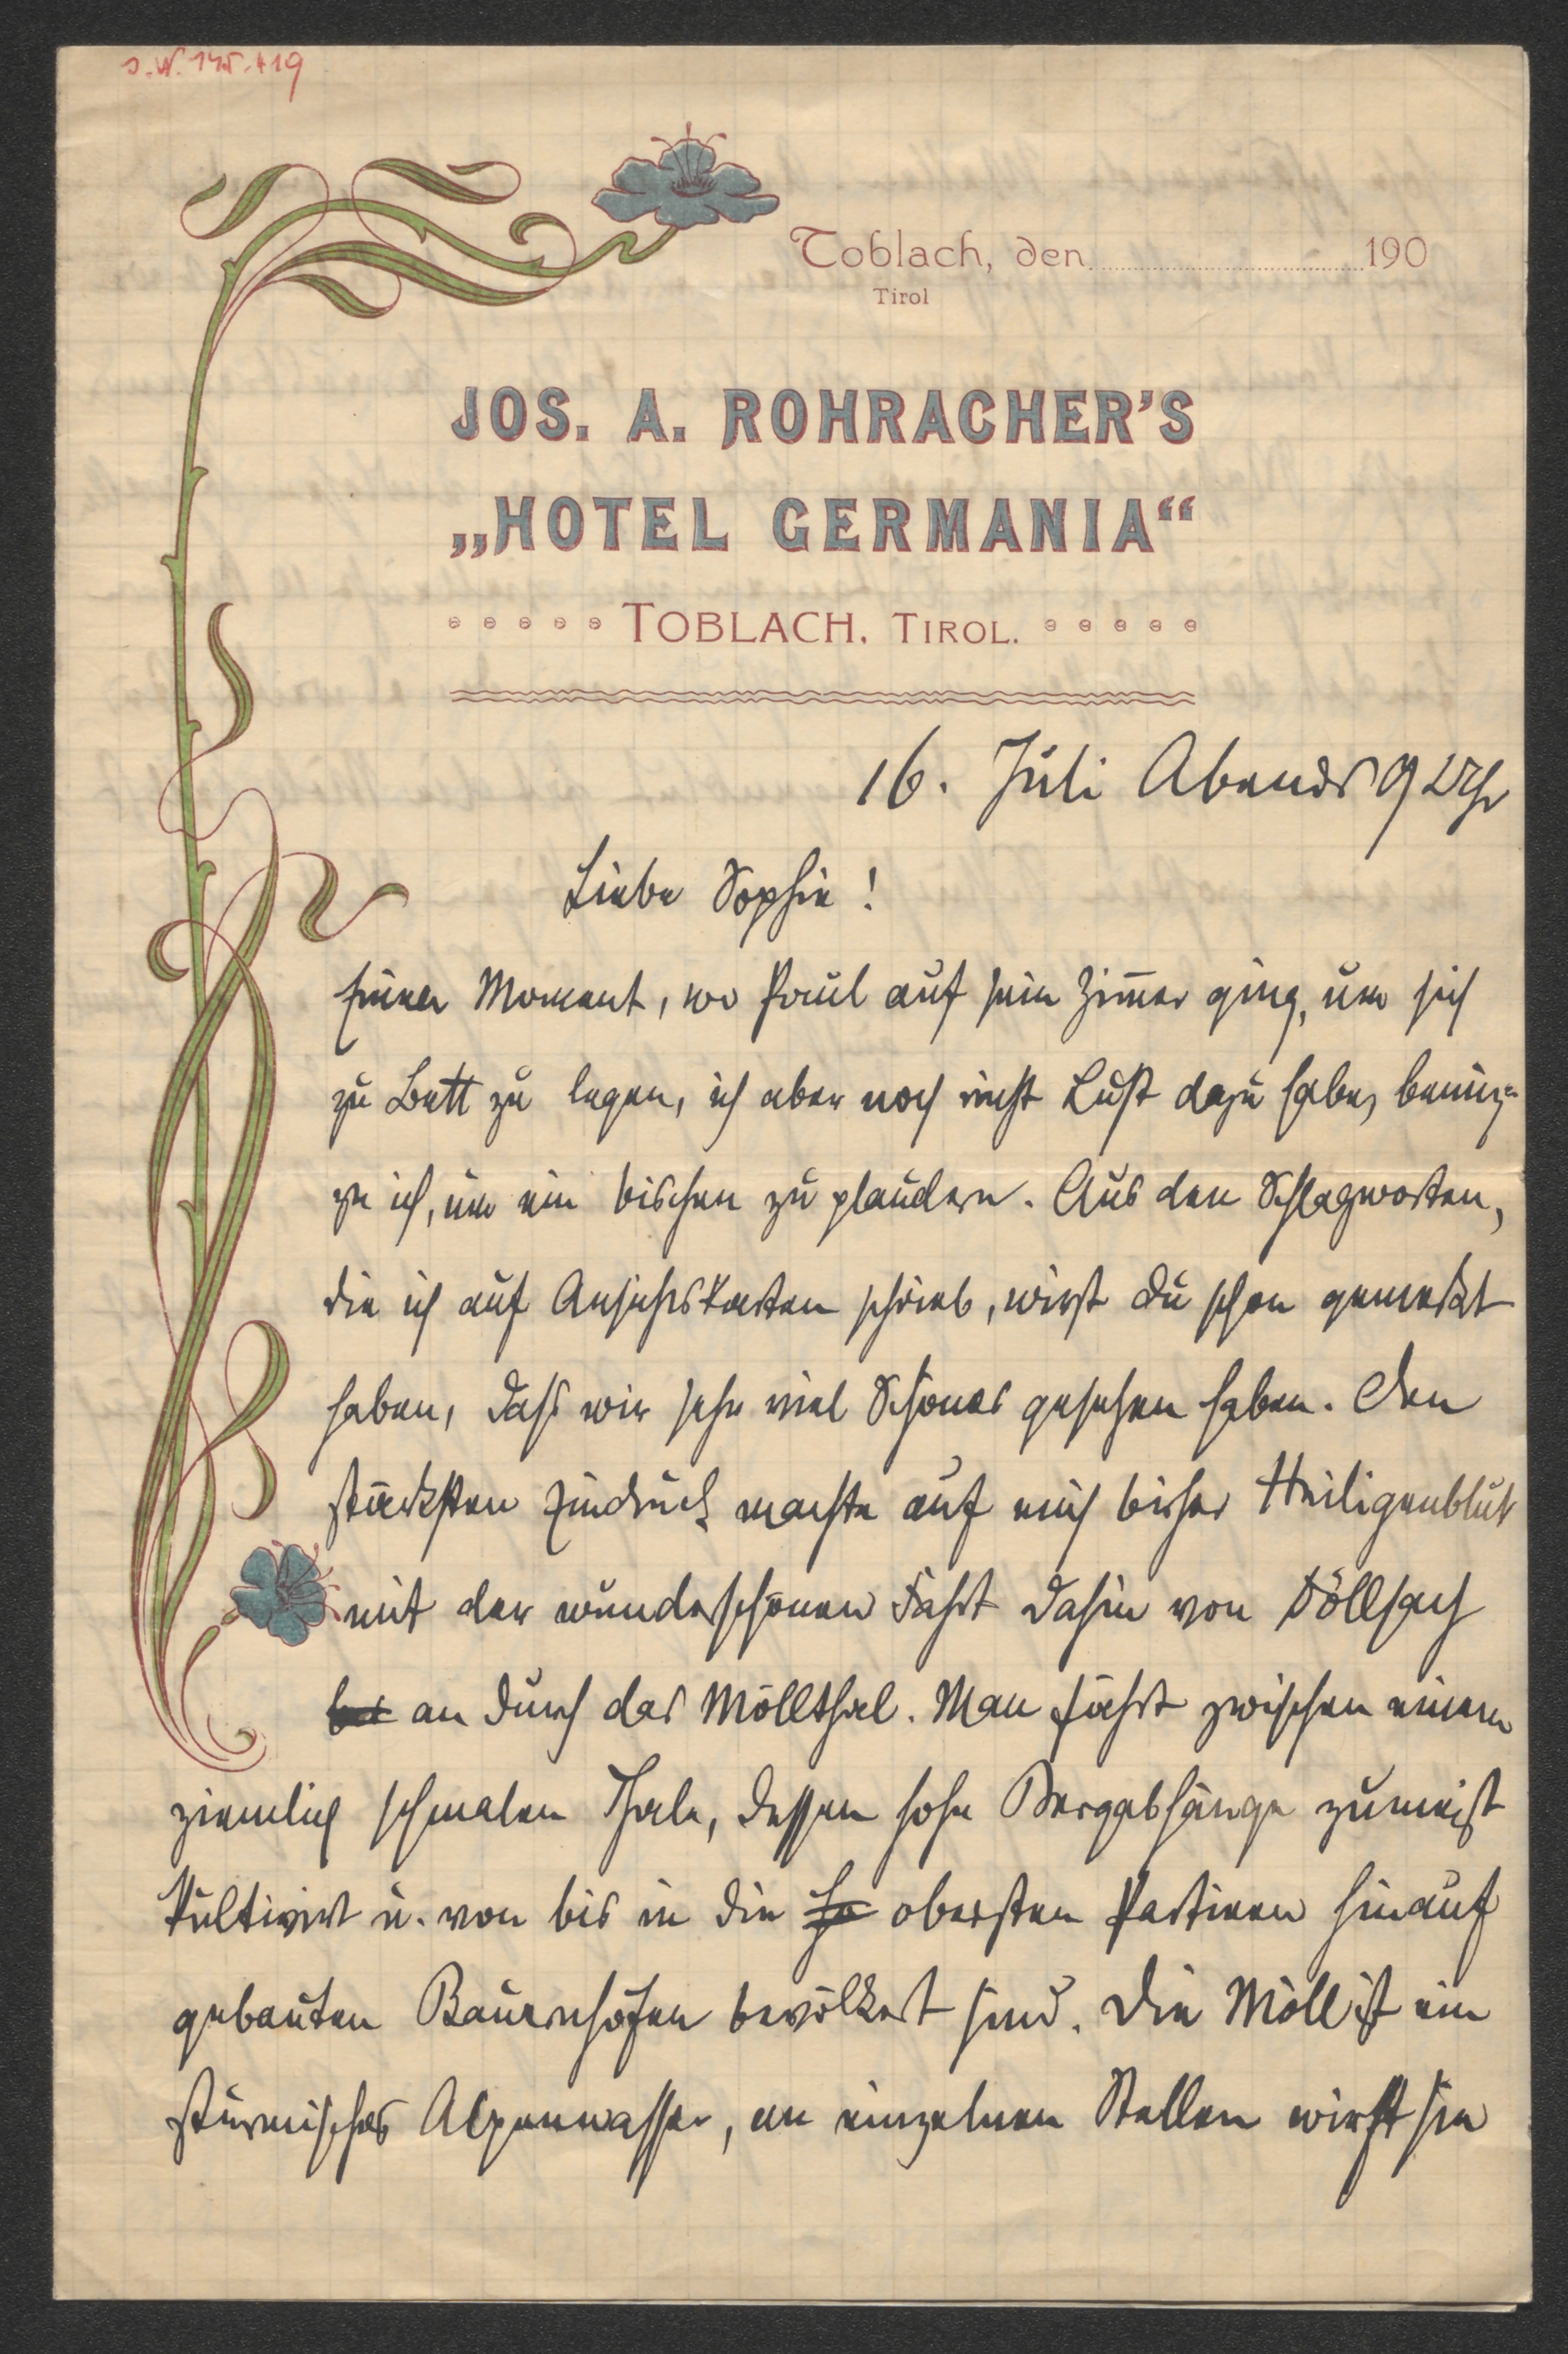 J. N. 145.419
Toblach, den 190
Tirol
JOS. A. ROHRACHER'S
„HOTEL GERMANIA“
TOBLACH, TIROL.
16. Juli Abends 9 Uhr
Liebe Sophie!
Moment, wo Paul auf sein Zim̅er ging, um sich
zu Bett zu legen, ich aber noch nicht Lust dazu habe, benüz-
ze ich, um ein bischen zu plaudern. Aus den Schlagworten,
die ich auf Ansichtskarten schrieb, wirst Du schon gemerkt
haben, dass wir sehr viel Schönes gesehen haben. Den
stärksten Eindruck machte auf mich bisher Heiligenblut
mit der wunderschönen Fahrt dahin von Döllsach
bis an durch das Möllthal. Man fährt zwischen einem
ziemlich schmalen Thale, dessen hohe Bergabhänge zumeist
kultivirt u. von bis in die hö obersten Partieen hinauf
gebauten Bauernhöfen bevölkert sind. Die Möll ist ein
stürmisches Alpenwasser, an einzelnen Stellen wirft sie